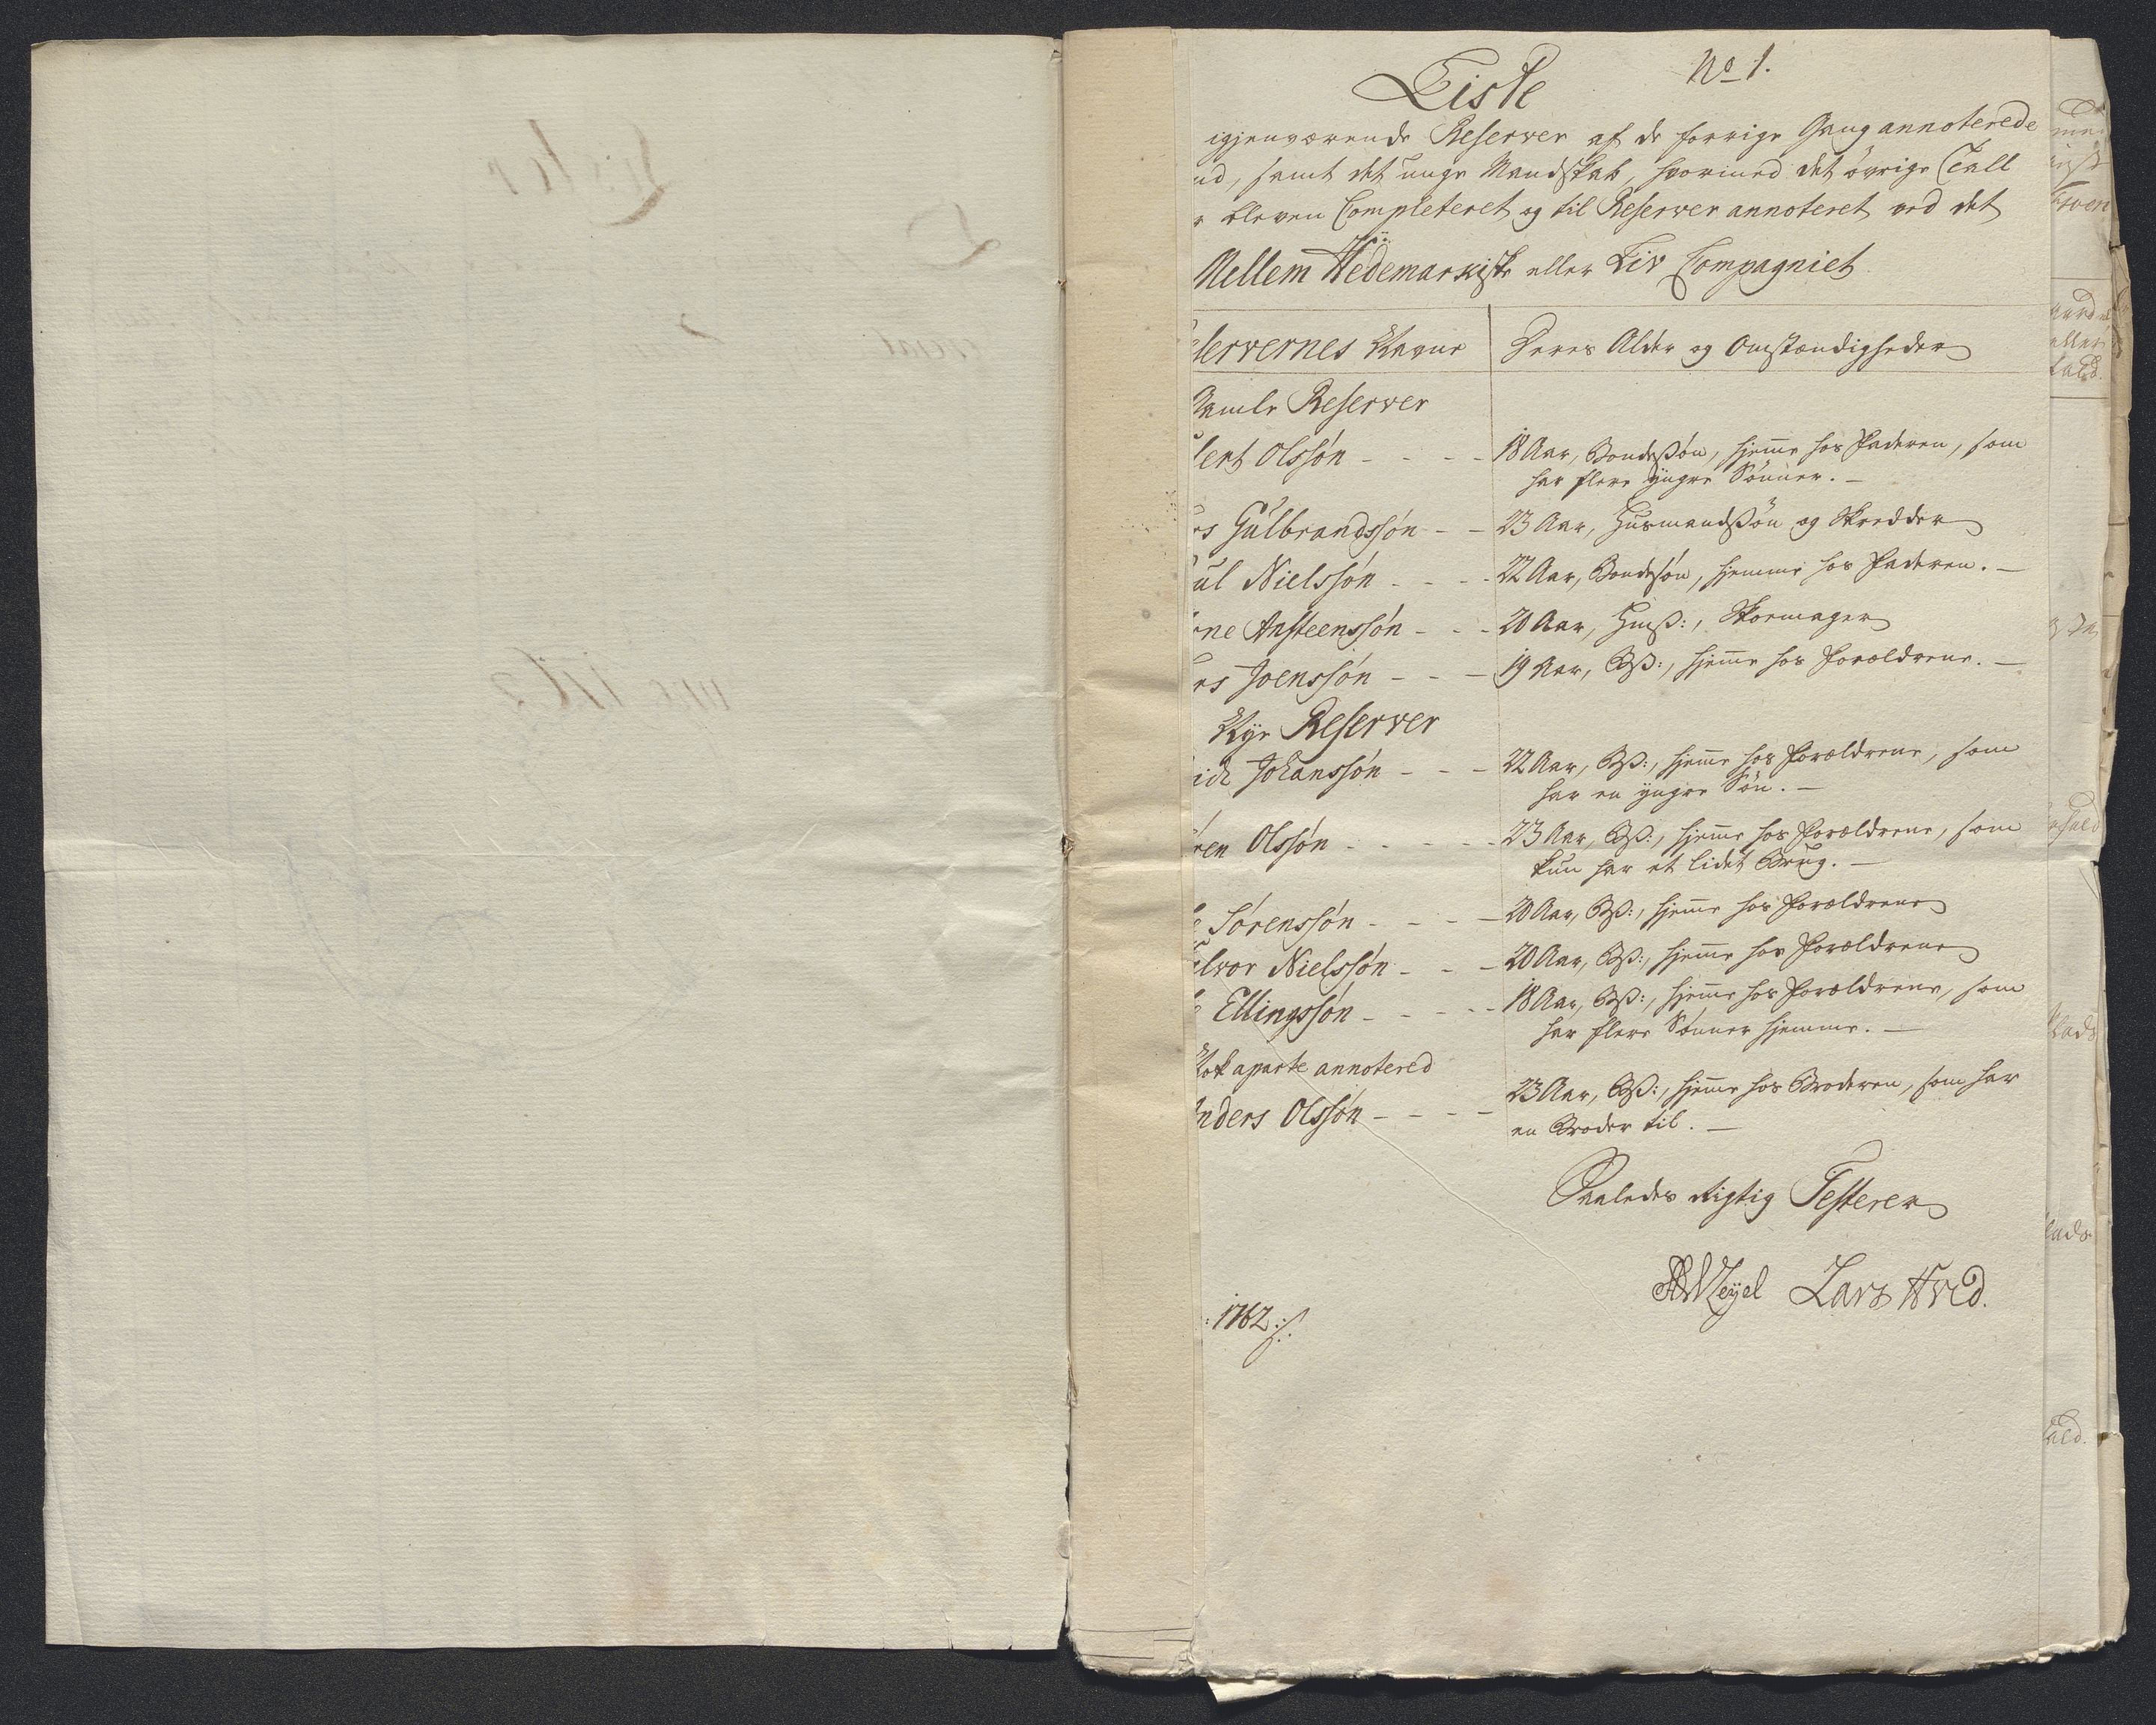 Liste
No 1.
igjenværende Reserver af de forrige Gang annoterede
nd, samt det unge Mandskab, hvormed det øvrige Tall
r bleven Completeret og til Reserver annoteret ved det
Mellem Hedemarkiske eller Liv Compagniet
servernes Navne
Deres Alder og Omstændigheder
Gamle Reserver
lert Olssøn - - - -
18 Aar, Bondessøn, hjem̅e hos Faderen, som
har flere yngre Sønner. -
rs Gulbrandssøn - -
23 Aar, Husmandssøn og Skredder
ul Nielssøn - - - -
22 Aar, Bondesøn, hjemme hos Faderen. -
rne Ansteenssøn - - -
20 Aar, Hmß:, Skoemager
rs Joenssøn - - -
19 Aar, Bß:, hjem̅e hos Forældrene. -
Nye Reserver
ich Johanssøn - - -
22 Aar, Bß:, hjem̅e hos Forældrene, som
har en yngre Søn. -
ren Olssøn - - - - -
23 Aar, Bß:, hjem̅e hos Forældrene, som
kun har et lidet Brug. -
e Sørenssøn - - - -
20 Aar, Bß:, hjem̅e hos Forældrene
lvor Nielssøn - - -
20 Aar, Bß:, hjem̅e hos Forældrene
e Ellingssøn - - - - -
18 Aar, Bß:, hjem̅e hos Forældrene, som
har flere Sønner hjemme. -
Nok aparte annotered
Anders Olssøn - - - -
23 Aar, Bß:, hjem̅e hos Broderen, som har
en Broder til. -
Saaledes rigtig Testerer
Lars Hved.
: 1762 ./.